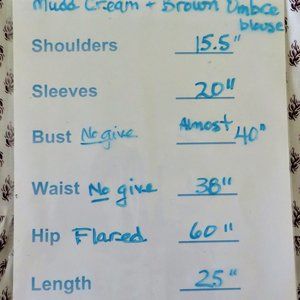 Mudd Cream + Brown Ombre
blouse
Shoulders 15.5"
Sleeves 20"
Bust No give Almost 40"
Waist No give 38"
Hip Flared 60"
Length 25"